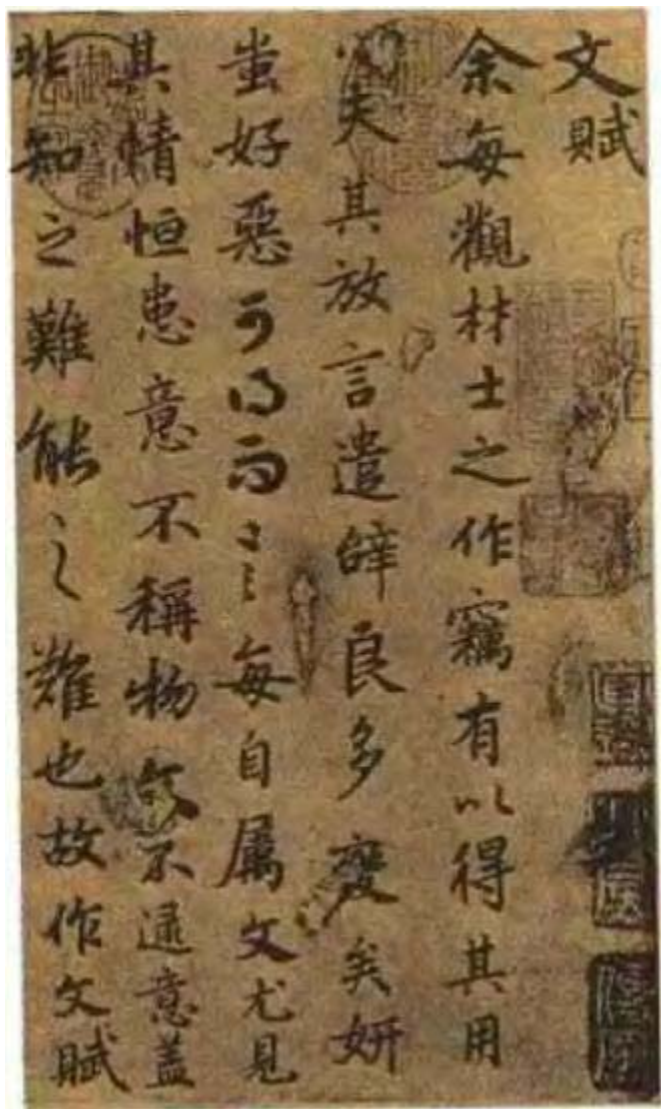 文賦
余每觀材士之作竊有以得其用
心夫其放言遣辝良多變矣妍
蚩好惡可得而言〻每自属文尤見
其情恒患意不稱物文不逮意盖
非知之難能之難也故作文賦